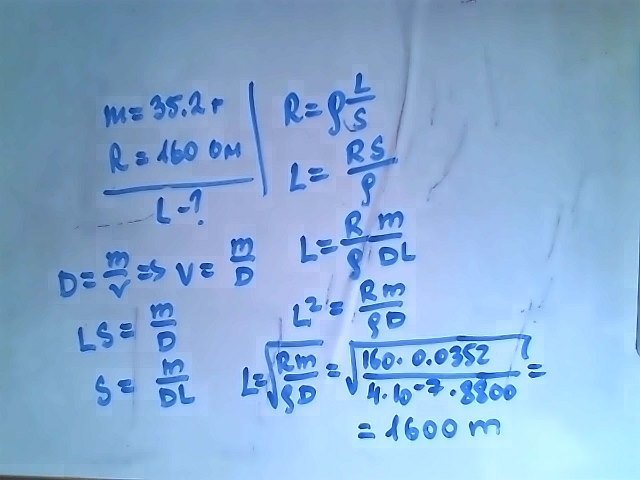 m = 35.2 г
R = 160 Ом
L - ?
R = ρ L/S
L = RS/ρ
D = m/V => V = m/D
LS = m/D
S = m/DL
L = R/ρ m/DL
L² = Rm/ρD
L = √(Rm/ρD) = √(160 · 0.0352 / 4·10-7 · 8800) =
= 1600 m